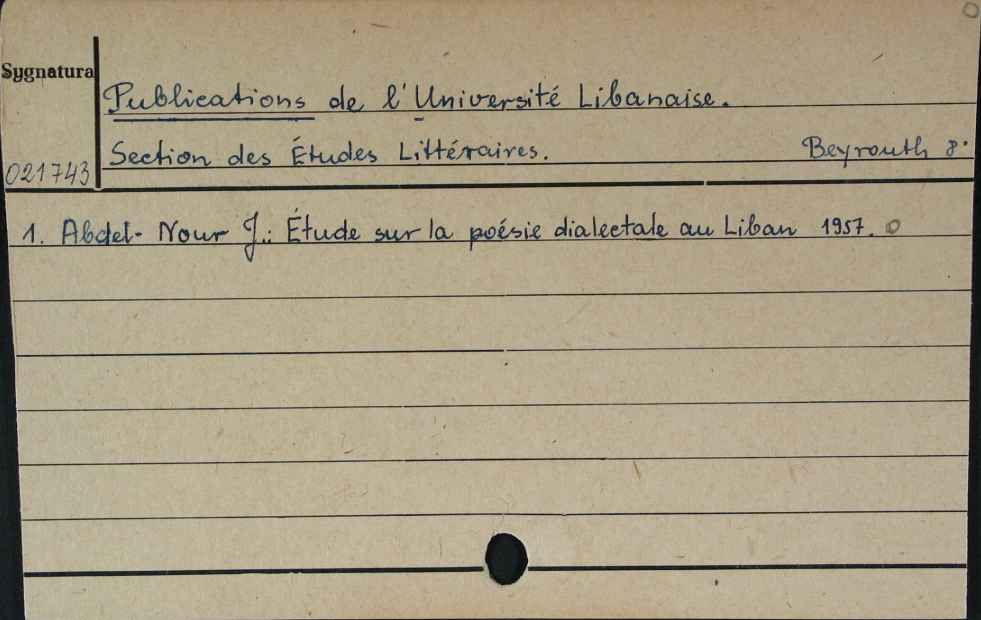 Sygnatura
Publications de l'Université Libanaise.
Section des Études Littéraires. Beyrouth 8°
021743
1. Abdel-Nour J.: Étude sur la poésie dialectale au Liban 1957.